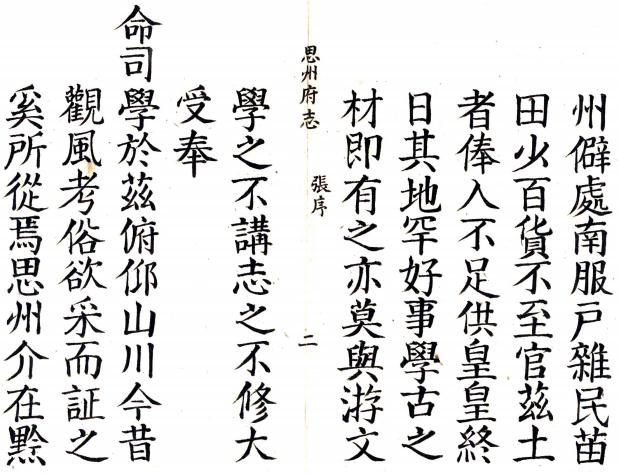 州僻處南服戸雜民苗
田少百貨不至官茲土
者俸入不足供皇皇終
日其地罕好事學古之
材即有之亦莫與游文
思州府志 張序 二
學之不講志之不修大
受奉
命司學於茲俯仰山川今昔
觀風考俗欲采而証之
奚所從焉思州介在黔